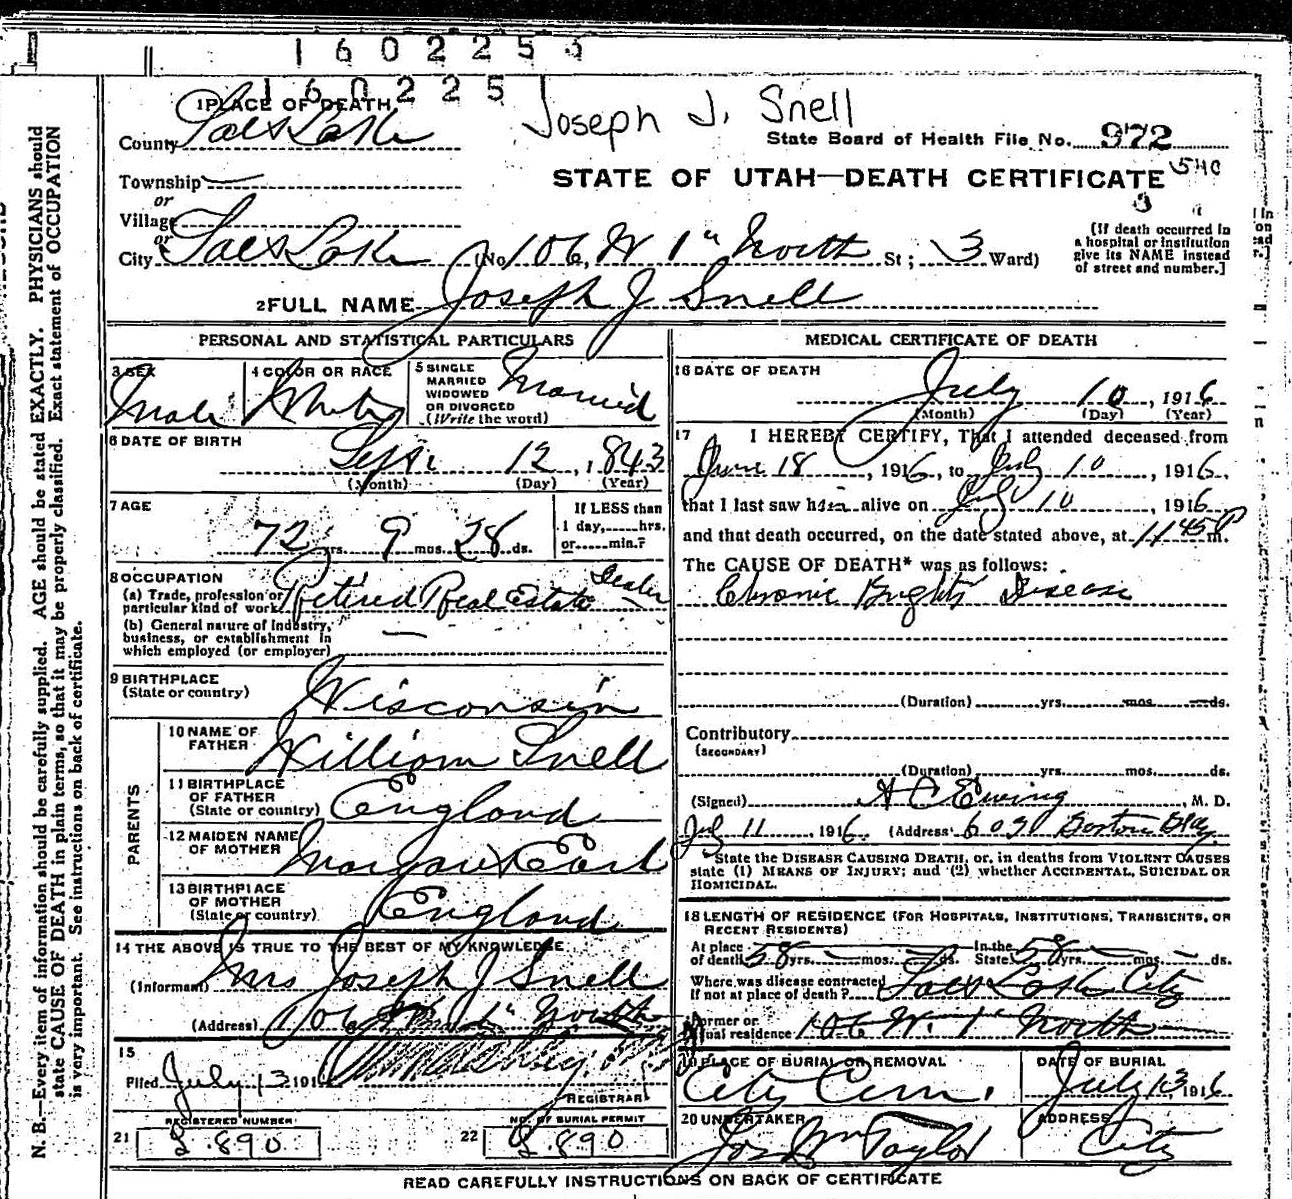 1602254
160225
Joseph J. Snell
1 PLACE OF DEATH
County Salt Lake
State Board of Health File No. 972
Township —
STATE OF UTAH—DEATH CERTIFICATE
540
or
Village
or
City Salt Lake (No 106 W 1st North St ; 3 Ward)
[If death occurred in
a hospital or institution
give its NAME instead
of street and number.]
2 FULL NAME Joseph J Snell
PERSONAL AND STATISTICAL PARTICULARS
3 SEX
Male
4 COLOR OR RACE
White
5 SINGLE
MARRIED
WIDOWED
OR DIVORCED
(Write the word)
Married
6 DATE OF BIRTH
Sept. 12, 1843
(Month) (Day) (Year)
7 AGE
72 yrs. 9 mos. 28 ds.
If LESS than
1 day,......hrs.
or......min.?
8 OCCUPATION
(a) Trade, profession or
particular kind of work Retired Real Estate Dealer
(b) General nature of Industry,
business, or establishment in
which employed (or employer) —
9 BIRTHPLACE
(State or country) Wisconsin
PARENTS
10 NAME OF
FATHER William Snell
11 BIRTHPLACE
OF FATHER
(State or country) England
12 MAIDEN NAME
OF MOTHER Margaret Earl
13 BIRTHPLACE
OF MOTHER
(State or country) England
14 THE ABOVE IS TRUE TO THE BEST OF MY KNOWLEDGE
(Informant) Mrs Joseph J Snell
(Address) 106 W 1st North
15
Filed July 13 191
REGISTRAR
REGISTERED NUMBER
21 L.890
NO. OF BURIAL PERMIT
22 L.890
MEDICAL CERTIFICATE OF DEATH
16 DATE OF DEATH
July 10, 1916
(Month) (Day) (Year)
17 I HEREBY CERTIFY, That I attended deceased from
June 18, 1916, to July 10, 1916,
that I last saw him alive on July 10, 1916
and that death occurred, on the date stated above, at 11 45 P m.
The CAUSE OF DEATH* was as follows:
Chronic Brights Disease
(Duration) yrs. mos. ds.
Contributory
(SECONDARY)
(Duration) yrs. mos. ds.
(Signed) A C Ewing, M. D.
July 11, 1916 (Address) Boston Bldg.
State the DISEASE CAUSING DEATH, or, in deaths from VIOLENT CAUSES
state (1) MEANS OF INJURY; and (2) whether ACCIDENTAL, SUICIDAL OR
HOMICIDAL.
18 LENGTH OF RESIDENCE (FOR HOSPITALS, INSTITUTIONS, TRANSIENTS, OR
RECENT RESIDENTS)
At place
of death 58 yrs. — mos. — ds.
In the
State 58 yrs. — mos. — ds.
Where was disease contracted
If not at place of death? Salt Lake City
Former or
usual residence 106 W. 1st North
19 PLACE OF BURIAL OR REMOVAL
City Cem.
DATE OF BURIAL
July 13, 1916
20 UNDERTAKER
Jos Wm Taylor
ADDRESS
City
READ CAREFULLY INSTRUCTIONS ON BACK OF CERTIFICATE
N. B.—Every item of information should be carefully supplied. AGE should be stated EXACTLY. PHYSICIANS should
state CAUSE OF DEATH in plain terms, so that it may be properly classified. Exact statement of OCCUPATION
is very important. See instructions on back of certificate.